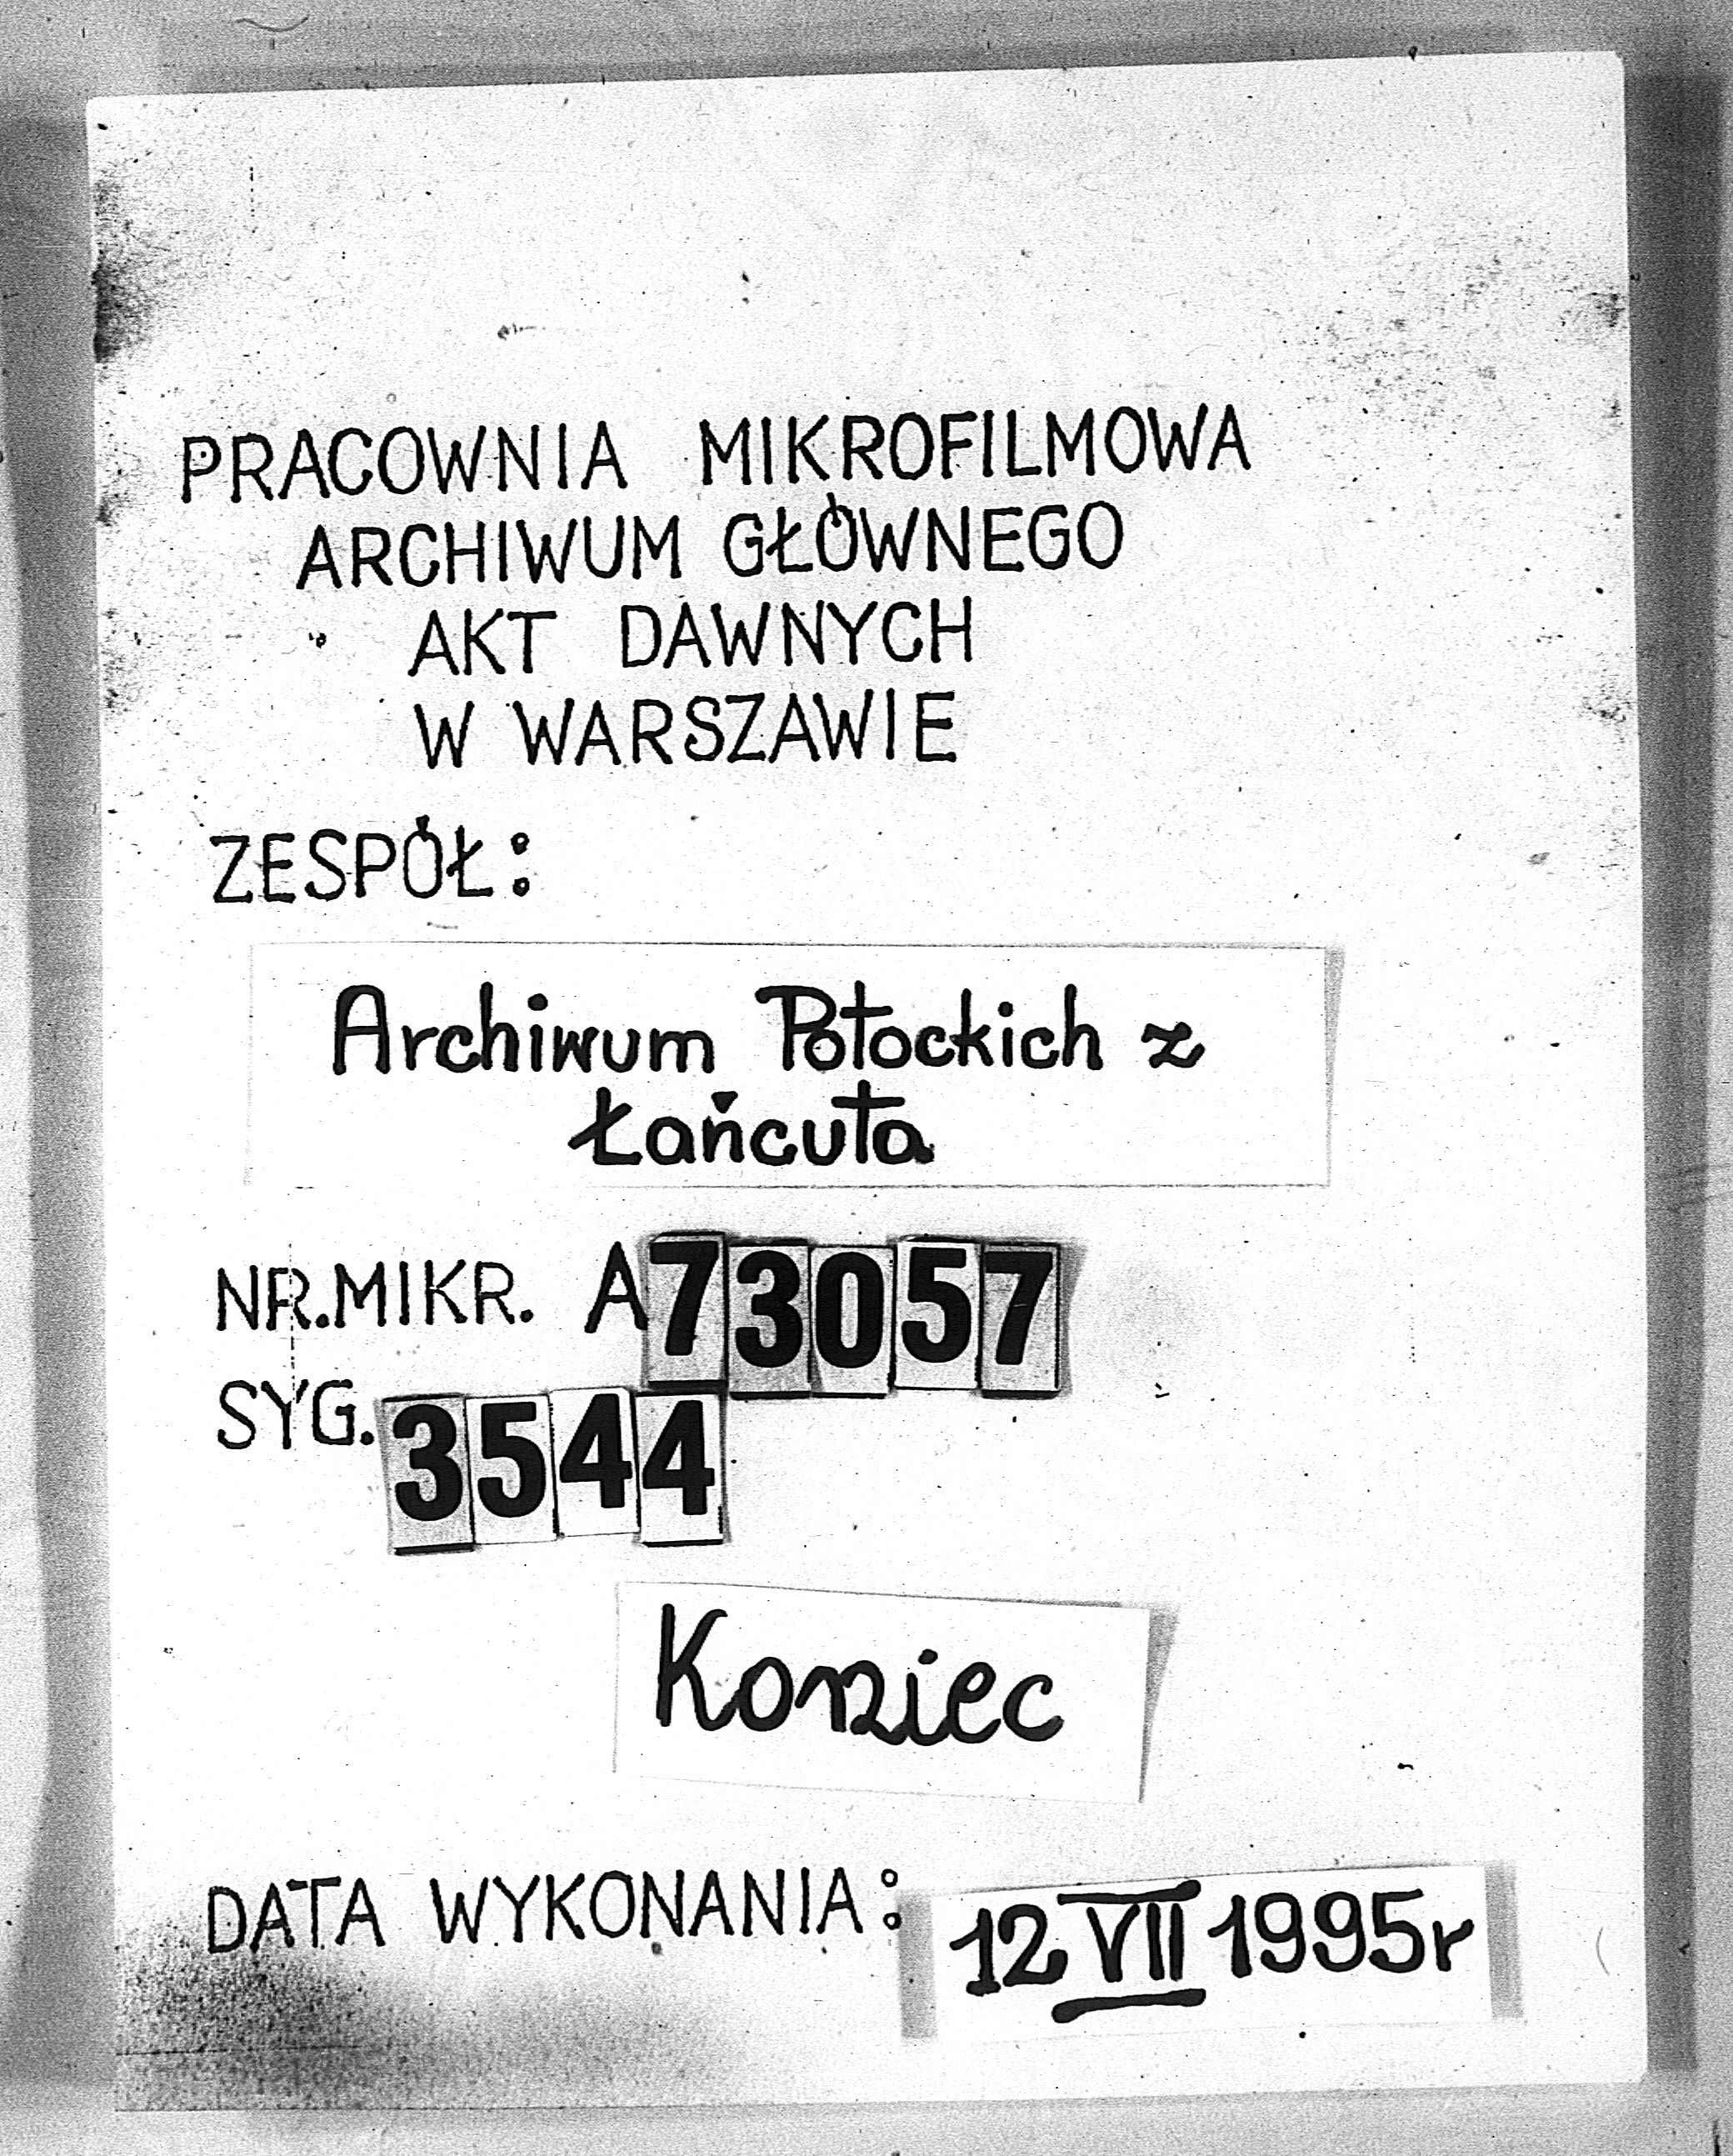 PRACOWNIA MIKROFILMOWA
ARCHIWUM GŁÓWNEGO
AKT DAWNYCH
W WARSZAWIE
ZESPÓŁ:
Archiwum Potockich z
Łańcuta
NR.MIKR. A73057
SYG. 3544
Koniec
DATA WYKONANIA: 12 VII 1995r